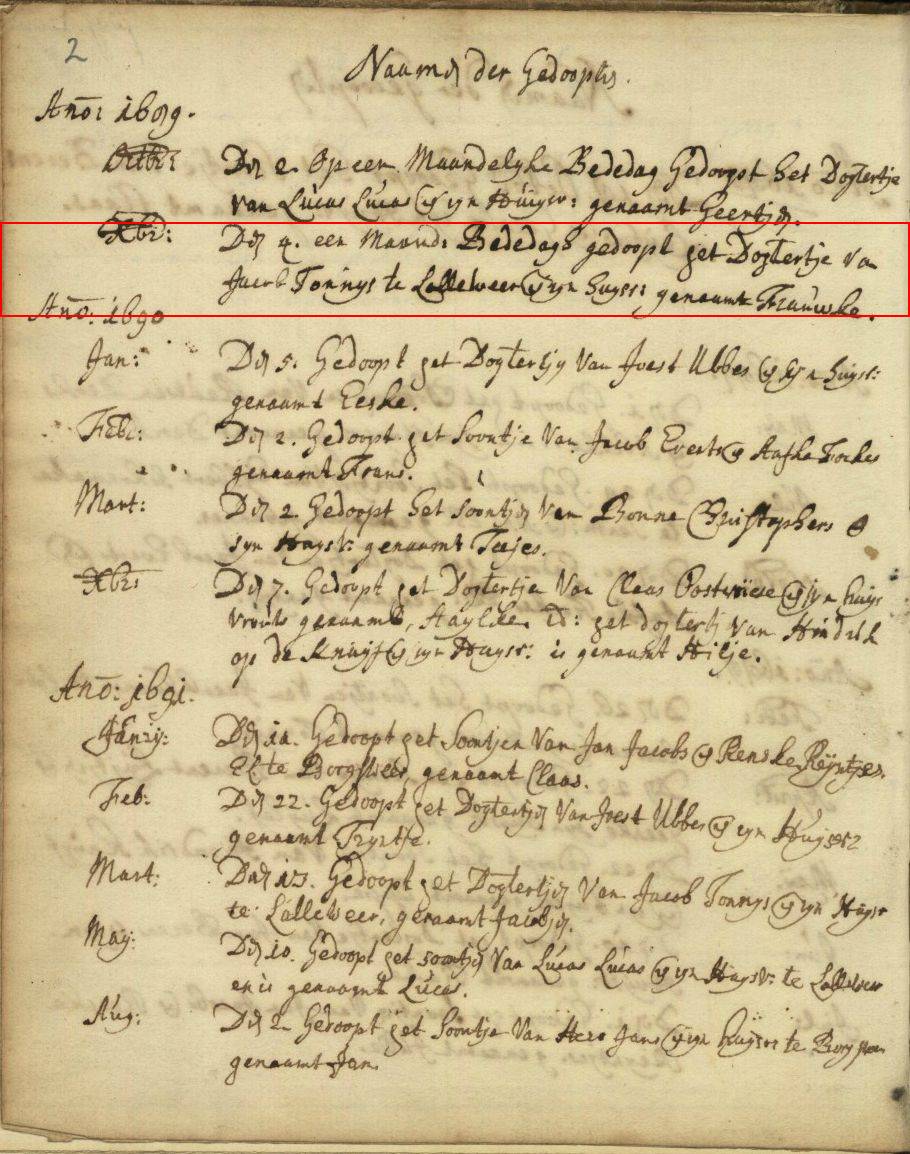 2
Naamen der Gedoopten.
Año: 1689.
Octbr: Den 2. Op een Maandelyke Bededag Gedoopt het Dogtertje
van Lucas Lucas en syn Huisvr: genaamt Geertjen.
Xbr: Den 4. een Maand: Bededags gedoopt het Dogtertje van
Jacob Tonnys te Lalleweer en syn huysvr: genaamt Frauwke.
Año: 1690
Jan: Den 5. Gedoopt het Dogtertjen Van Joest Ubbes en syn huysvr:
genaamt Eeske.
Febr: Den 2. Gedoopt het Soontje Van Jacob Everts en Aafke Fockes
genaamt Frans.
Mart: Den 2. Gedoopt het Soontjen Van Bonne Christophers en
syn Huysvr: genaamt Tejes.
Xbr: Den 7. Gedoopt het Dogtertje Van Claas Oostwiese en syn huys
vrouw genaamt, Aaylke. It: het dogtertj van Hindrik
op de Knuyf en syn Huysvr: is genaamt Hilje.
Año: 1691.
Janry: Den 11. Gedoopt het Soontjen Van Jan Jacobs en Renske Reyntjes
El: te Borgsweer, genaamt Claas.
Feb: Den 22. Gedoopt het Dogtertjen Van Joest Ubbes en syn Huysvr
genaamt Tryntje.
Mart: Den 13. Gedoopt het Dogtertjen Van Jacob Tonnys en syn Huysvr
te Lalleweer, genaamt Jacobjen.
May: Den 10. Gedoopt het soontjen Van Lucas Lucas en syn Huysvr: te Lalleweer
en is genaamt Lucas.
Aug: Den 2. Gedoopt het Soontje Van Hero Jans en syn huysvr te Borgsweer
genaamt Jan.